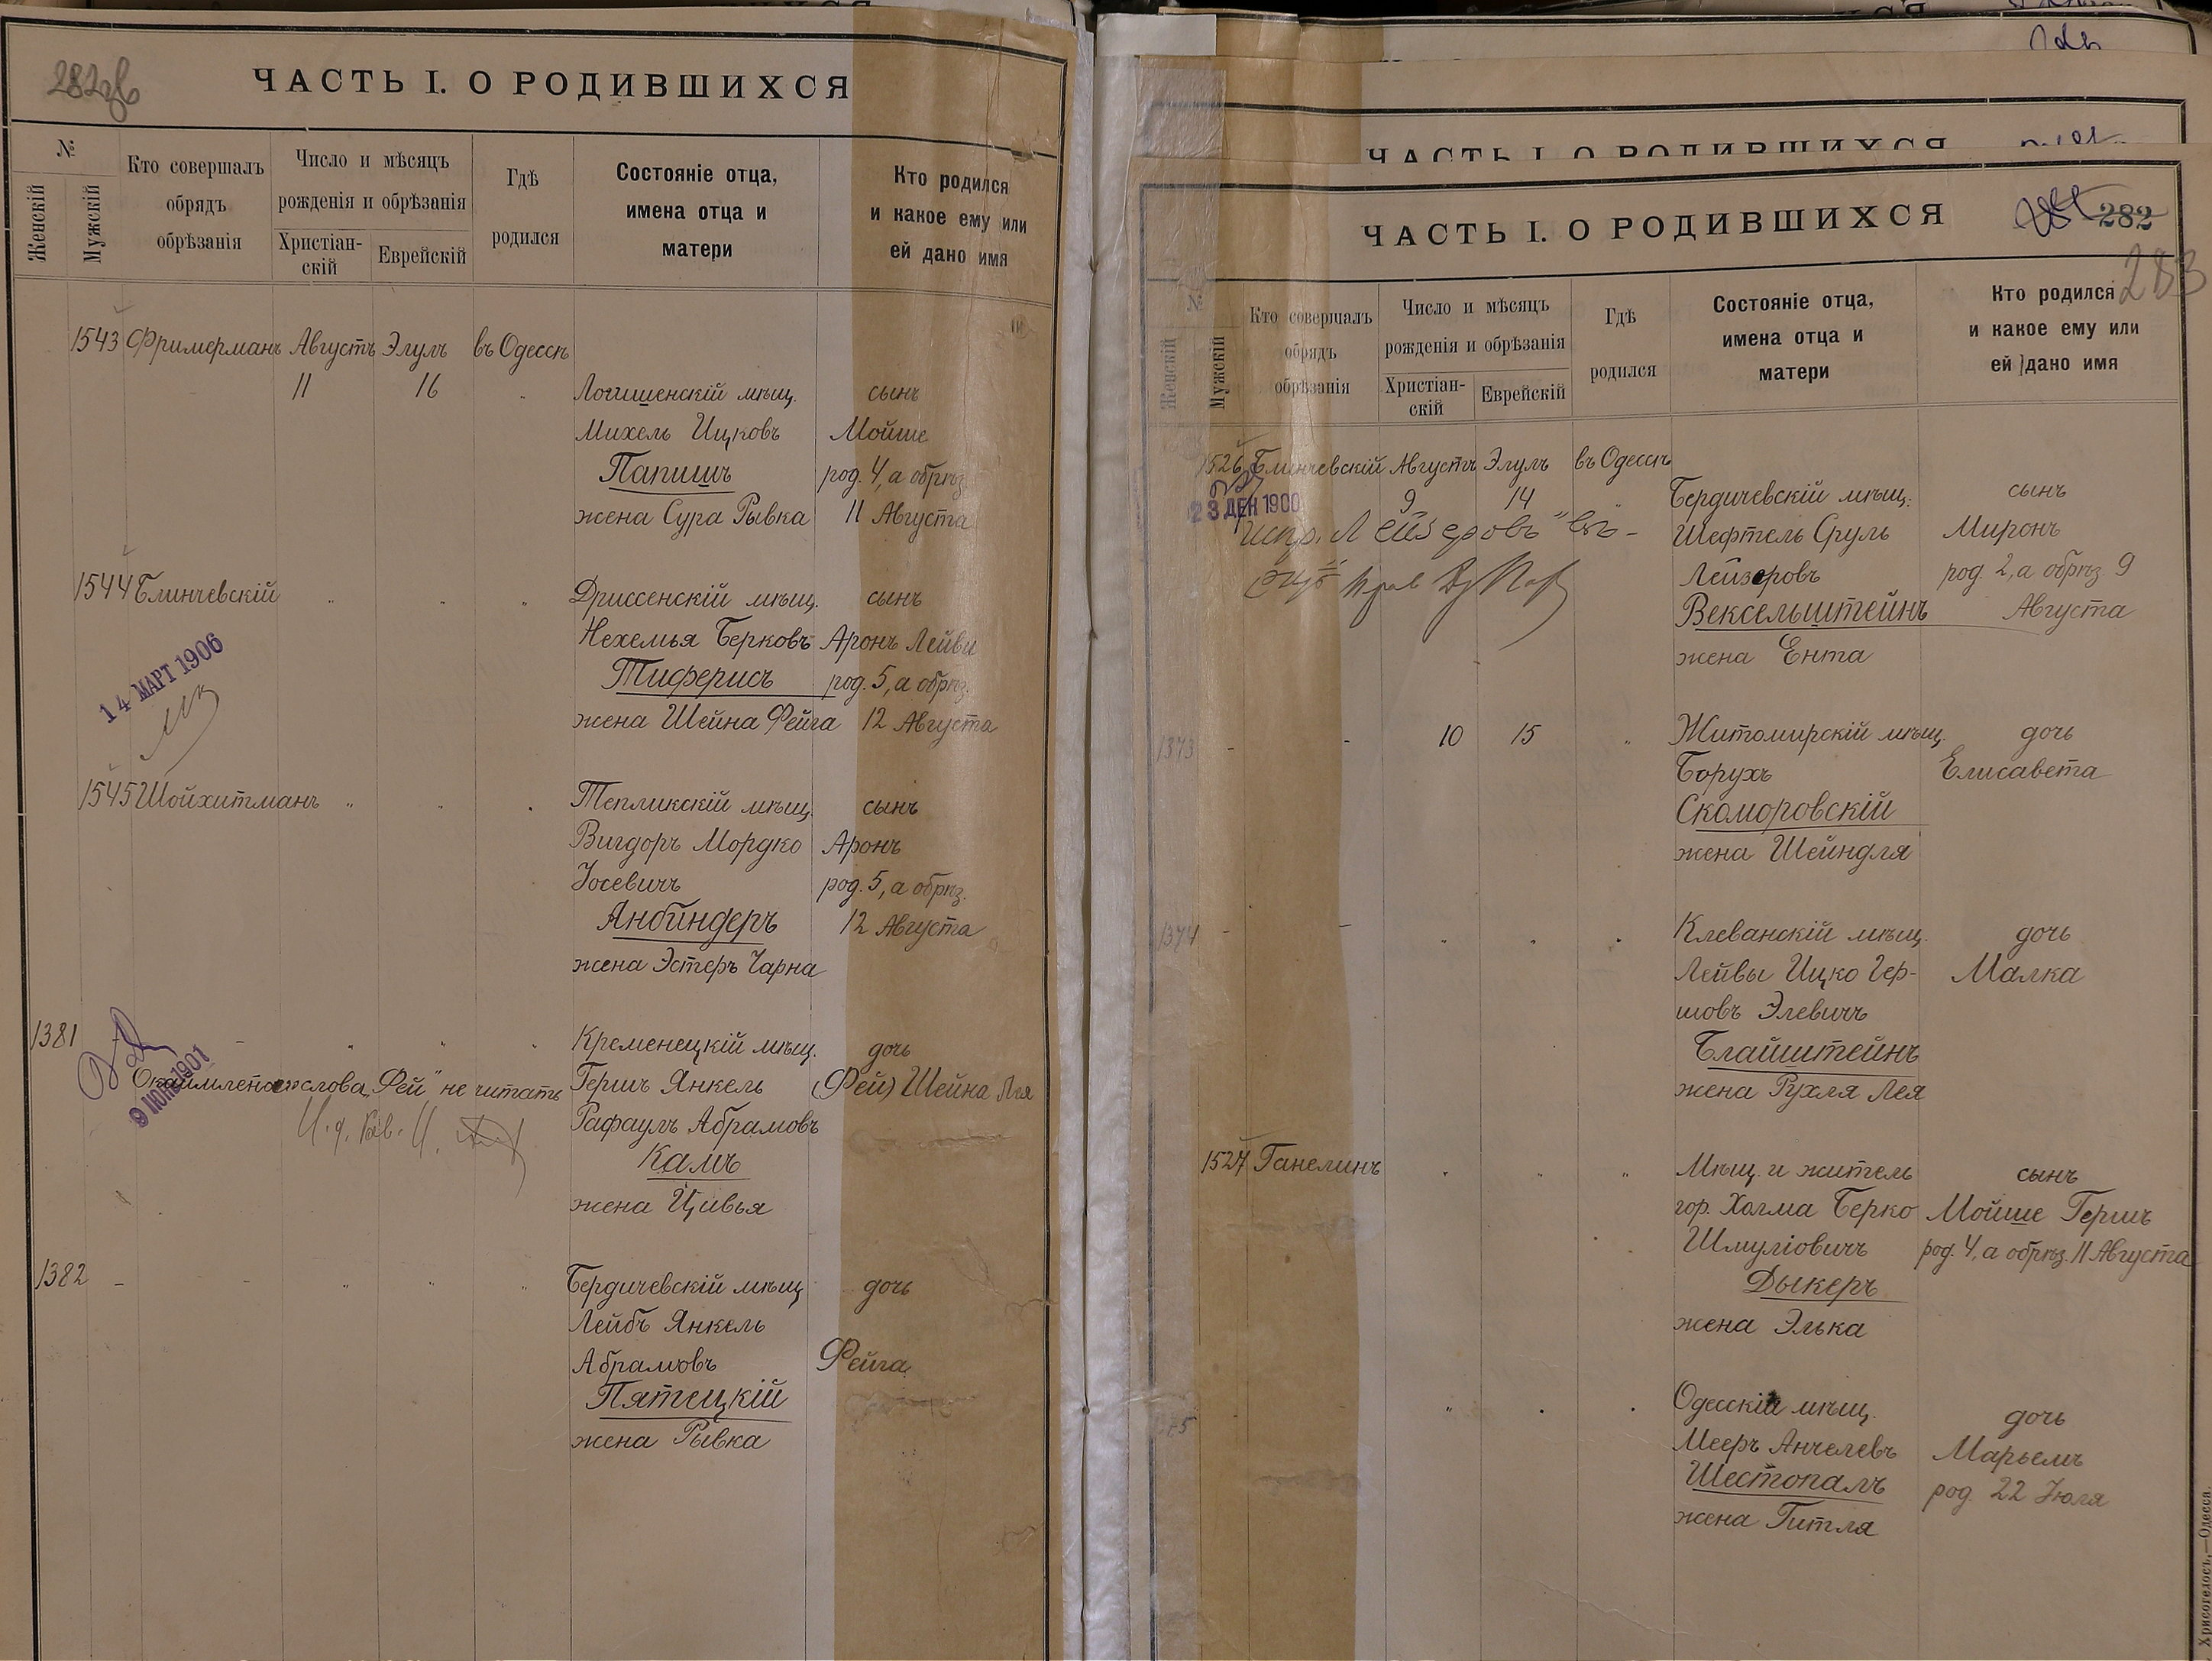 ЧАСТЬ I. О РОДИВШИХСЯ
№
Женскій
Мужскій
Кто совершалъ
обрядъ
обрѣзанія
Число и мѣсяцъ
рожденія и обрѣзанія
Христіан-
скій
Еврейскій
Гдѣ
родился
Состояніе отца,
имена отца и
матери
Кто родился
и какое ему или
ей дано имя
1543 Фримерманъ Августъ Элулъ въ Одессѣ
11 16 Логишенскій мѣщ. сынъ
Михель Ицковъ Мойше
Папишъ род. 4, а обрѣз.
жена Сура Рывка 11 Августа
1544 Блинчевскій " " " Дриссенскій мѣщ. сынъ
Нехемья Берковъ Аронъ Лейви
Тиферисъ род. 5, а обрѣз.
жена Шейна Фейга 12 Августа
14 МАРТ 1906
1545 Шойхитманъ " " " Тепликскій мѣщ. сынъ
Вигдоръ Мордко Аронъ
Іосевичъ род. 5, а обрѣз.
Анбиндеръ 12 Августа
жена Эстеръ Чарна
1381 - - " " " Кременецкій мѣщ. дочь
Окаймленное слова „Фей" не читать Гершъ Янкель (Фей) Шейна Лея
9 ИЮН 1901
Рафаулъ Абрамовъ
Камъ
жена Цивья
1382 - - " " " Бердичевскій мѣщ. дочь
Лейбъ Янкель
Абрамовъ Фейга
Пятецкій
жена Рывка
ЧАСТЬ I. О РОДИВШИХСЯ
ЧАСТЬ I. О РОДИВШИХСЯ 282
283
№
Женскій
Мужскій
Кто совершалъ
обрядъ
обрѣзанія
Число и мѣсяцъ
рожденія и обрѣзанія
Христіан-
скій
Еврейскій
Гдѣ
родился
Состояніе отца,
имена отца и
матери
Кто родился
и какое ему или
ей дано имя
1526 Блинчевскій Августъ Элулъ въ Одессѣ
9 14 " Бердичевскій мѣщ. сынъ
23 ДЕК 1900
Испр. Лейзеровъ
Шефтель Сруль Миронъ
Лейзеровъ род. 2, а обрѣз. 9
Вексельштейнъ Августа
жена Ента
1373 - - 10 15 " Житомирскій мѣщ. дочь
Борухъ Елисавета
Скоморовскій
жена Шейндля
1374 - - " " " Клеванскій мѣщ. дочь
Лейвы Ицко Гер- Малка
шовъ Элевичъ
Блайштейнъ
жена Рухля Лея
1527 Ганелинъ " " " Мѣщ. и житель сынъ
гор. Холма Берко Мойше Гершъ
Шмуліовичъ род. 4, а обрѣз. 11 Августа
Дыкеръ
жена Элька
" " " Одесскій мѣщ. дочь
Мееръ Анчелевъ Марьемъ
Шестопалъ род. 22 Іюля
жена Гитля
Хрисогелосъ,—Одесса.